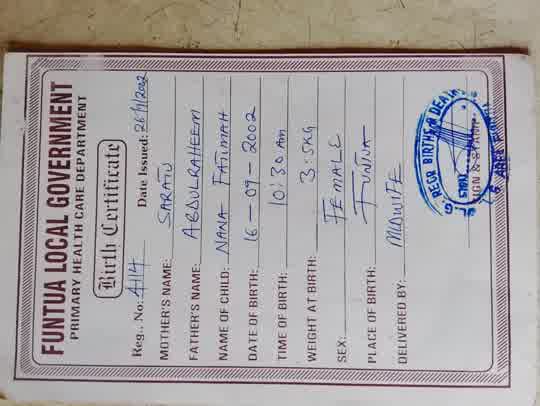 FUNTUA LOCAL GOVERNMENT
PRIMARY HEALTH CARE DEPARTMENT
Birth Certificate
Reg., No: 4114 Date Issued: 26/11/2002
MOTHER'S NAME: SARATU
FATHER'S NAME: ABDULRAHEEM
NAME OF CHILD: NANA FATIMAH
DATE OF BIRTH: 16-09-2002
TIME OF BIRTH: 10:30 am
WEIGHT AT BIRTH: 3.5KG
SEX: FEMALE
PLACE OF BIRTH: FUNTUA
DELIVERED BY: MIDWIFE
SIGN & STAMP
REGR BIRTHS & DEATH